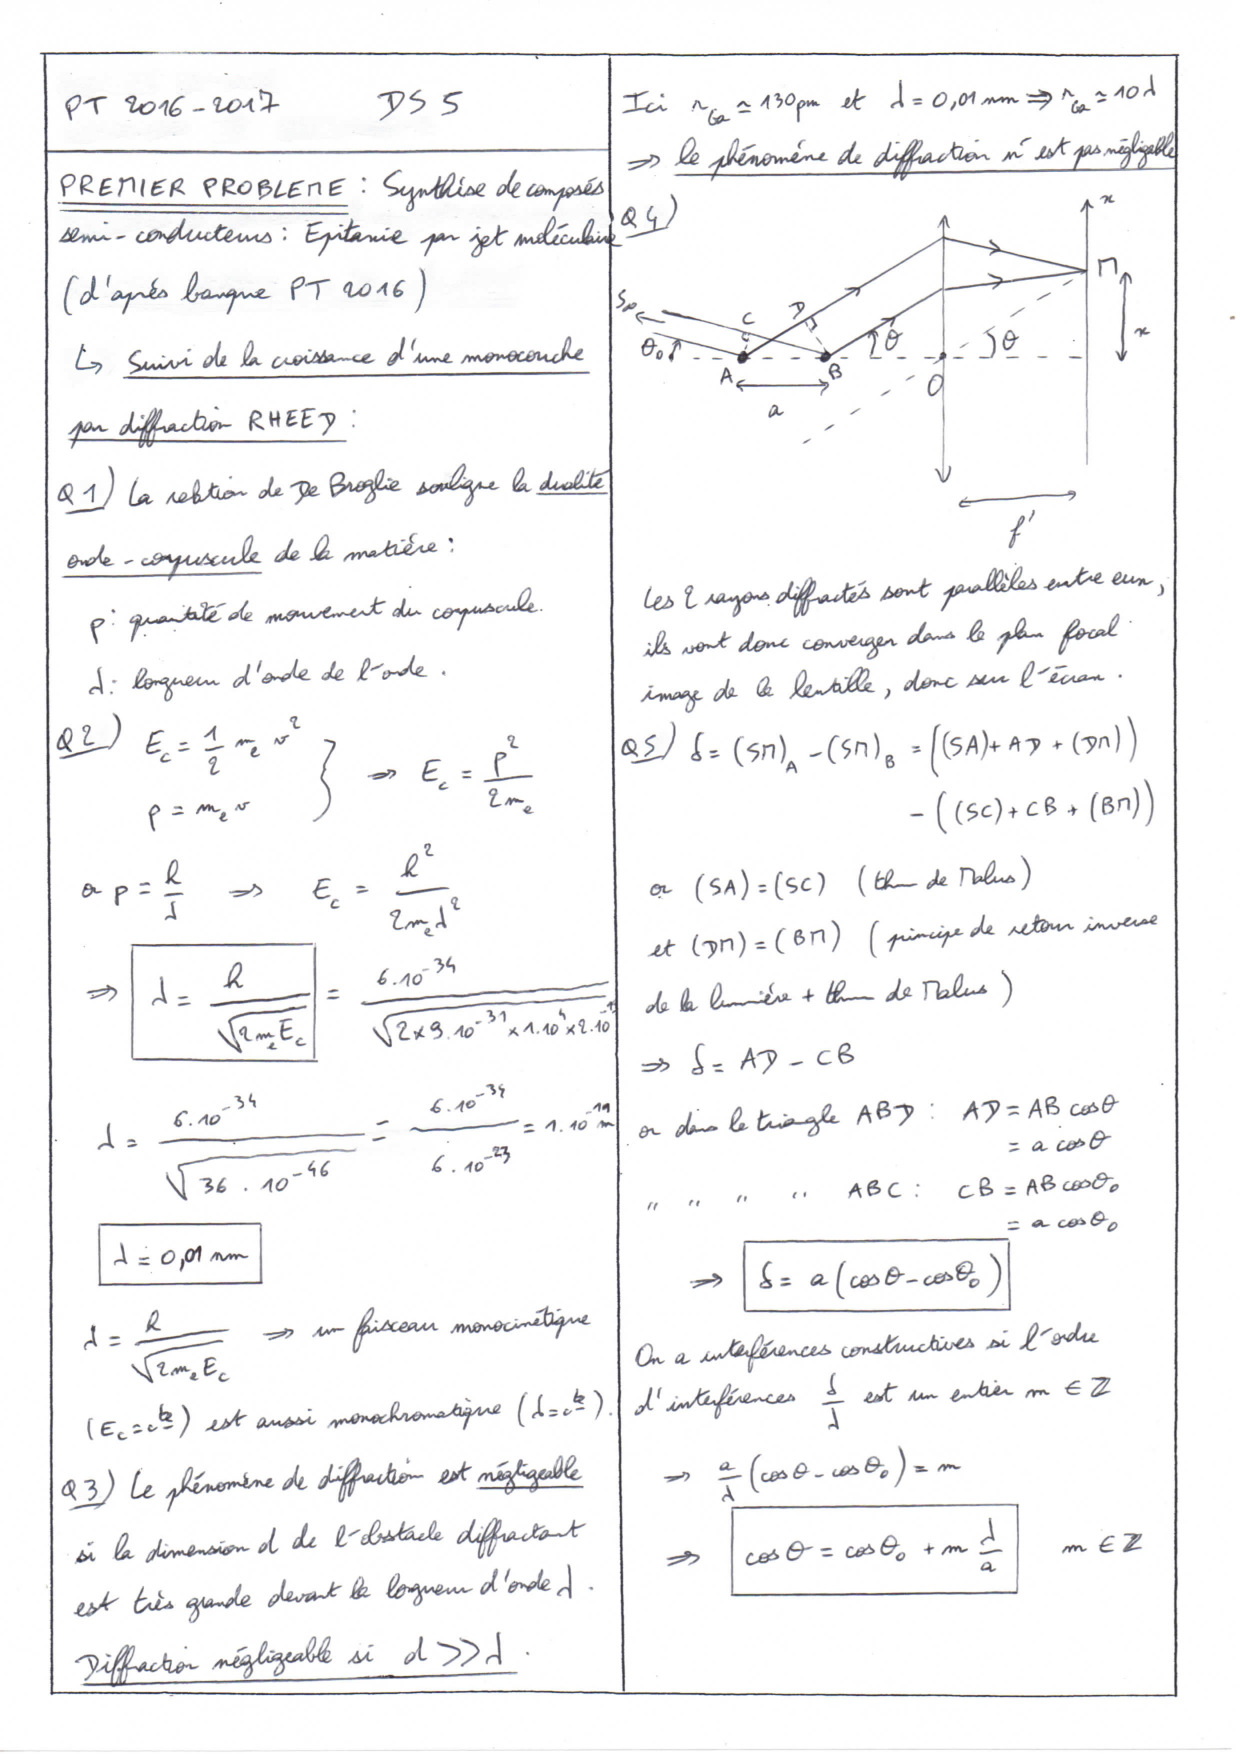 PT 2016-2017 DS 5
PREMIER PROBLEME : Synthèse de composés
semi-conducteurs : Epitaxie par jet moléculaire
(d'après banque PT 2016)
↳ Suivi de la croissance d'une monocouche
par diffraction RHEED :
Q1) La relation de De Broglie souligne la dualité
onde-corpuscule de la matière :
p : quantité de mouvement du corpuscule.
λ : longueur d'onde de l'onde.
Q2) E_c = 1/2 m_e v²
p = m_e v } ⇒ E_c = p²/2m_e
or p = h/λ ⇒ E_c = h²/2m_eλ²
⇒ λ = h/√(2m_eE_c) = 6.10^-34/√(2×9.10^-31×1.10^4×2.10^-19)
λ = 6.10^-34/√(36.10^-46) = 6.10^-34/6.10^-23 = 1.10^-11 m
λ = 0,01 nm
λ = h/√(2m_eE_c) ⇒ un faisceau monocinétique
(E_c = cte) est aussi monochromatique (λ = cte).
Q3) Le phénomène de diffraction est négligeable
si la dimension d de l'obstacle diffractant
est très grande devant la longueur d'onde λ.
Diffraction négligeable si d >> λ.
Ici r_Ga ≃ 130pm et λ = 0,01 nm ⇒ r_Ga ≃ 10λ
⇒ le phénomène de diffraction n'est pas négligeable
Q4)
x
M
S∞
C
D
θ₀
θ
θ
x
A
B
O
a
f'
Les 2 rayons diffractés sont parallèles entre eux,
ils vont donc converger dans le plan focal
image de la lentille, donc sur l'écran.
Q5) δ = (SM)_A - (SM)_B = ((SA) + AD + (DM))
- ((SC) + CB + (BM))
or (SA) = (SC) (thm de Malus)
et (DM) = (BM) (principe de retour inverse
de la lumière + thm de Malus)
⇒ δ = AD - CB
or dans le triangle ABD : AD = AB cosθ
= a cosθ
" " " " ABC : CB = AB cosθ₀
= a cosθ₀
⇒ δ = a(cosθ - cosθ₀)
On a interférences constructives si l'ordre
d'interférences δ/λ est un entier m ∈ ℤ
⇒ a/λ (cosθ - cosθ₀) = m
⇒ cosθ = cosθ₀ + m λ/a m ∈ ℤ